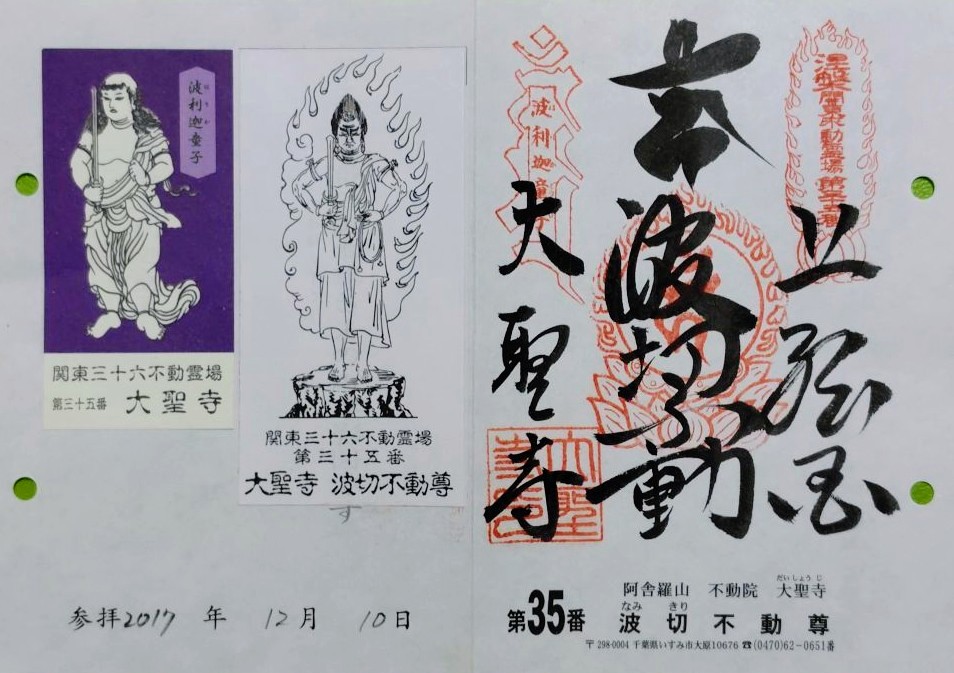 波利迦童子
関東三十六不動霊場
第三十五番 大聖寺
関東三十六不動霊場
第三十五番
大聖寺 波切不動尊
参拝2017年 12月 10日
上総国
波切不動
大聖寺
波利迦童子
だいしょうじ
阿舎羅山 不動院 大聖寺
なみ きり
第35番 波切不動尊
〒298-0004 千葉県いすみ市大原10676 ☎(0470)62-0651番